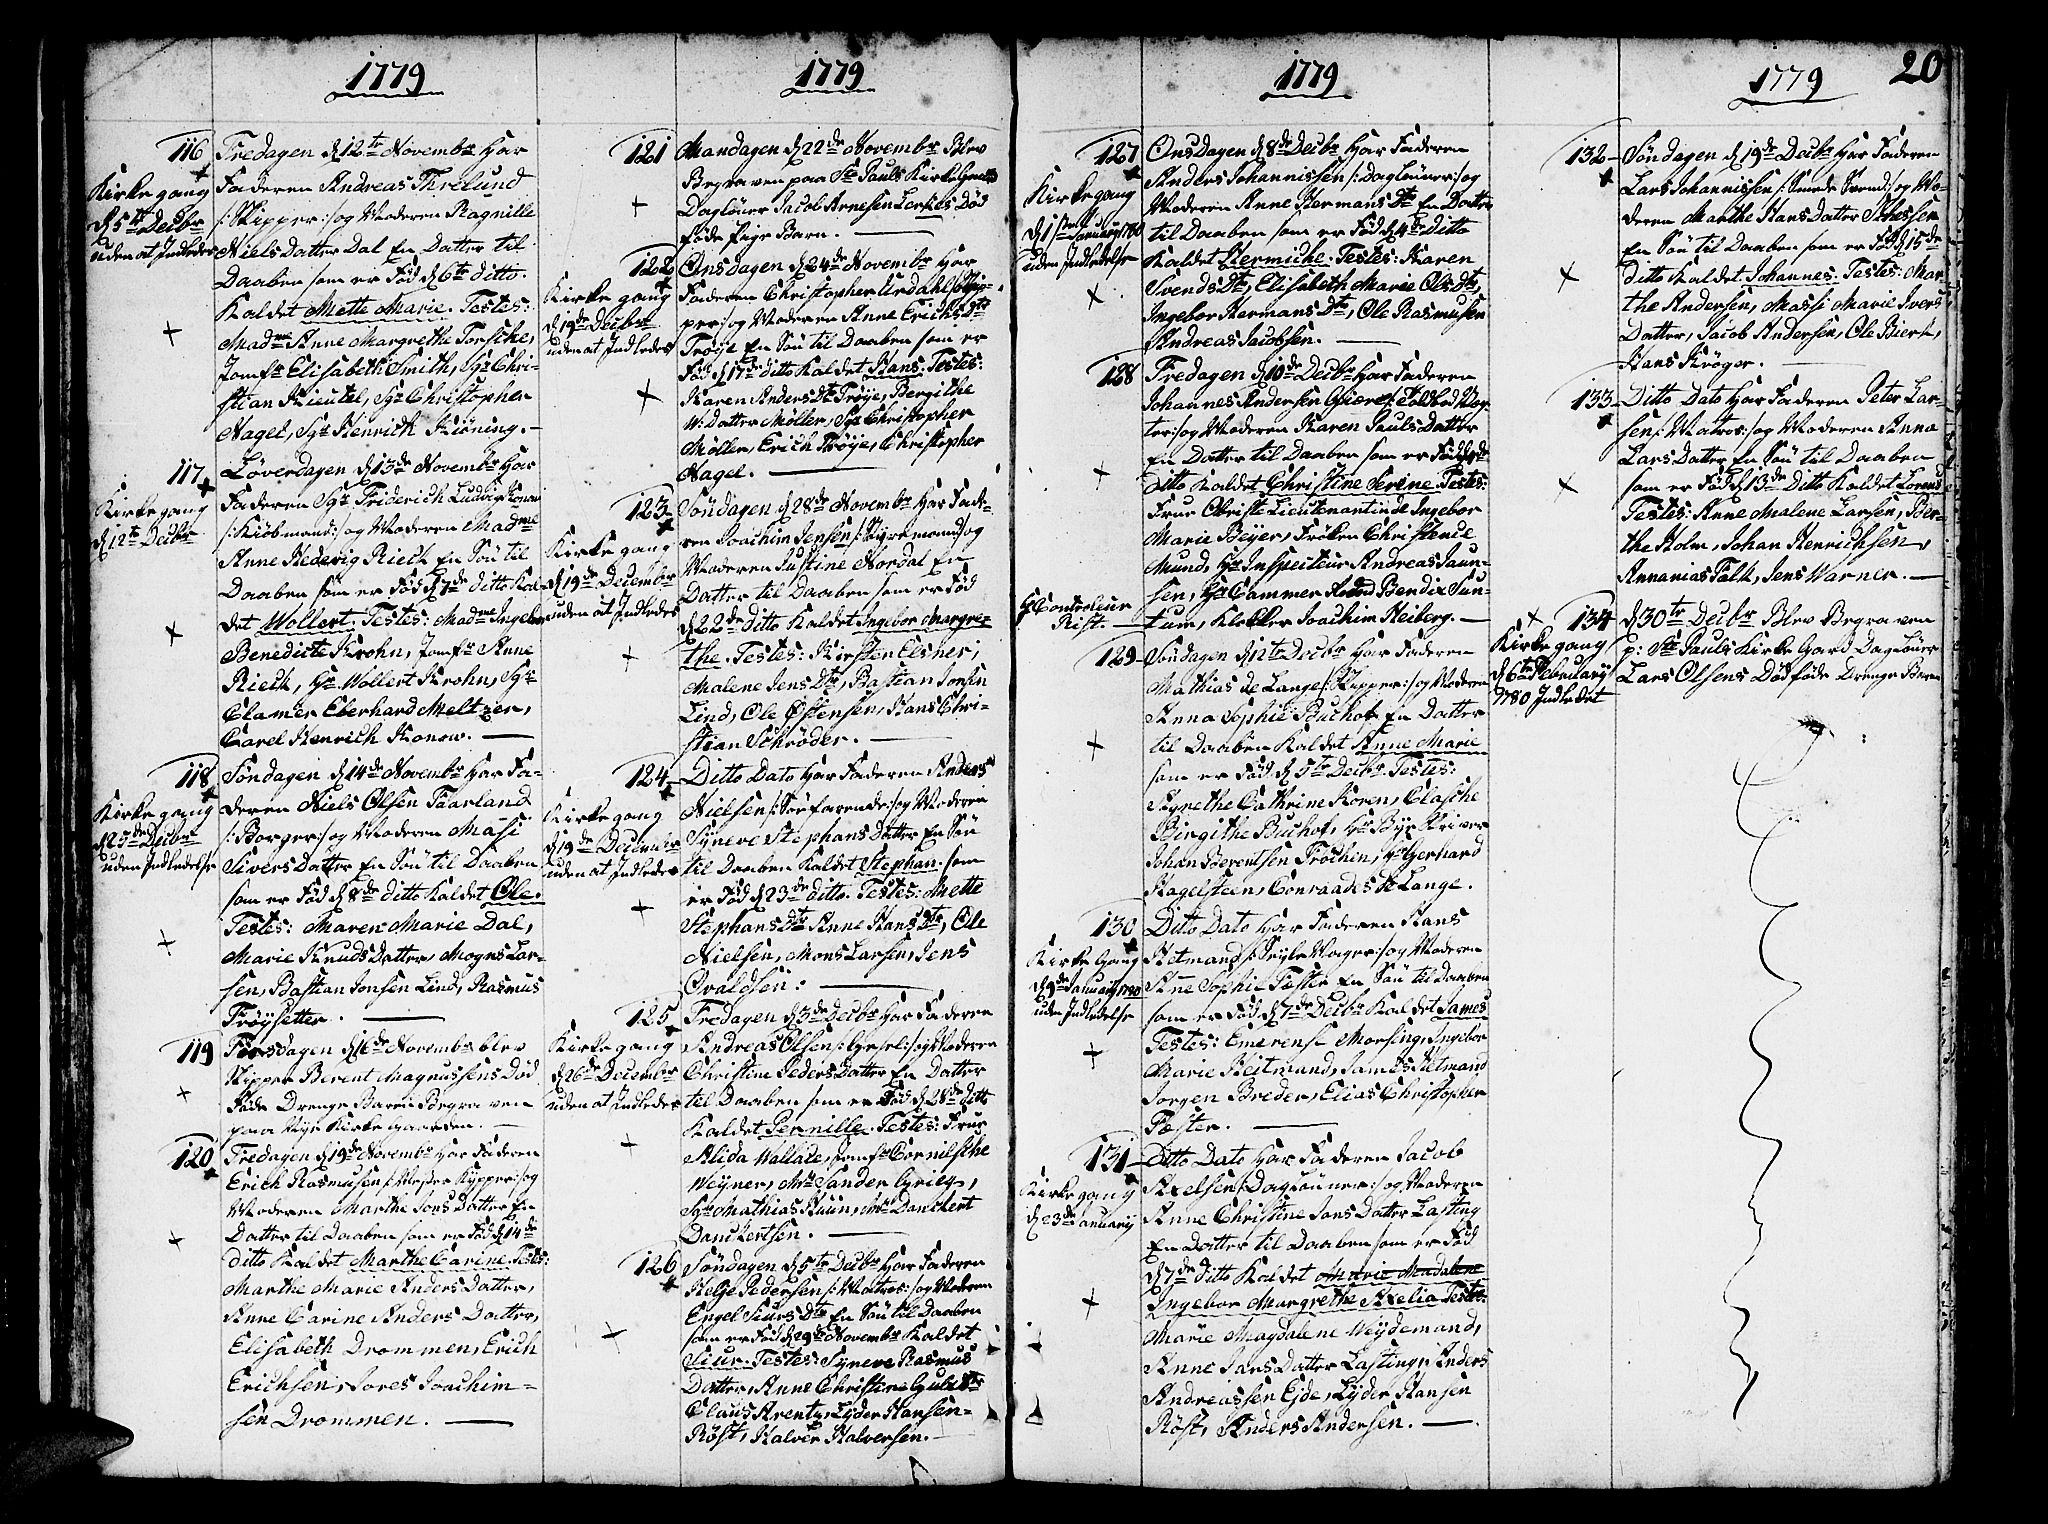 20
1779
116
Kirkegang
d 5te Decbr
uden at Indledes
Fredagen d 12te Novembr Har
Faderen Andreas Threlund
/: Skipper :/ og Moderen Ragnille
Niels Datter Dal En Datter til
Daaben som er Fød d 6te ditto
Kaldet Mette Marie. Testes:
Madme Anne Margrethe Forsche,
Jomfr Elisabeth Smith, Sgr Chri-
stian Kieutel, Sgr Christopher
Nagel, Sgr Henrich Kröning.
117
Kirkegang
d 12te Decbr
Løverdagen d 13de Novembr Har
Faderen Sgr Friderich Ludvig Konow
/: Kiøbmand :/ og Moderen Madme
Anne Hedevig Riech En Søn til
Daaben som er Fød d 7de ditto Kal-
det Wollert. Testes: Madme Ingebor
Benedicte Krohn, Jomfr Anne
Riech, Hr Wollert Krohn, Sgr
Clamer Eberhard Meltzer,
Carel Henrich Konow.
118
Kirkegang
d 25de Decbr
uden Indledelse
Søndagen d 14de Novembr Har Fa-
deren Niels Olsen Faarland
/: Borger :/ og Moderen Masi
Sivers Datter En Søn til Daaben
som er Fød d 8de ditto Kaldet Ole.
Testes: Maren Marie Dal,
Marie Knuds Datter, Mogns Lar-
sen, Bastian Jonsen Lind, Rasmus
Frøysetter.
119
Torsdagen d 16de Novembr blev
Skipper Berent Magnussens Død
Føde Drenge Baren Begraven
paa Nye Kirkegaarden.
120
Fredagen d 19de Novembr Har Faderen
Erich Rasmusen /: Mester Kypper :/ og
Moderen Marthe Jons Datter En
Datter til Daaben som er Fød d 14de
ditto Kaldet Marthe Carine. Testes:
Marthe Marie Anders Datter,
Anne Carine Anders Datter,
Elisabeth Drommen, Erich
Erichsen, Jores Joachim-
sen Drommen.
1779
121
Mandagen d 22de Novembr Blev
Begraven paa Ste Pauls Kirke Gaard
Dagløner Jacob Arnesen Døød
føde Pige Barn.
122
Kirkegang
d 19de Decbr
uden at Indledes
Onsdagen d 24de Novembr Har
Faderen Christopher Urdahl /: Skip-
per :/ og Moderen Anne Erichs Dtr
Trøye En Søn til Daaben som er
Fød d 17de ditto Kaldet Hans. Testes:
Karen Anders Dtr Trøye, Bergithe
W: Datter Møller, Sgr Christopher
Møller, Erich Trøye, Christopher
Nagel.
123
Kirkegang
d 19de Decembr
uden at Indledes
Søndagen d 28de Novembr Har Fade-
ren Joachim Jensen /: Styremand :/ og
Moderen Justine Nordal En
Datter til Daaben som er Fød
d 22de ditto Kaldet Ingebor Margre-
the. Testes: Kirsten Elsner,
Malene Jens Dtr, Bastian Jonsen
Lind, Ole Østensen, Hans Chri-
stian Schrøder.
124
Kirkegang
d 19de December
uden at Indledes
Ditto Dato Har Faderen Anders
Nielsen /: Søefarende :/ og Moderen
Syneve Stephans Datter En Søn
til Daaben Kaldet Stephan. som
er Fød d 23de ditto. Testes: Mette
Stephans Dtr Anne Hans Dtr, Ole
Nielsen, Mons Larsen, Jens
Ovaldsen.
125
Kirkegang
d 26de December
uden at Indledes
Fredagen d 3de Decbr Har Faderen
Andreas Olsen og Moderen
Christine Peders Datter En Datter
til Daaben som er Fød d 28de ditto
Kaldet Pernille. Testes: Frue
Alida Wallace, Jomfr Cornilsche
Weyner, Mr Sander Grieg,
Sgr Mathias Kuun, Mr Danckert
Danckertsen.
126
Søndagen d 5te Decbr Har Faderen
Helje Pedersen /: Matros :/ og Moderen
Engel Siurs Dtr En Søn til Daaben
som er Fød d 29de Novembr Kaldet
Siur. Testes: Syneve Rasmus
Datter, Anne Christine Dtr
Claus Arentz, Lyder Hansen
Røst, Halver Halversen.
1779
127
Kirkegang
d 1ste January 1780
uden Indledelse
Onsdagen d 8de Decbr Har Faderen
Anders Johannissen /: Dagløner :/ og
Moderen Anne Hermans Dtr En Datter
til Daaben som er Fød d 4de ditto
Kaldet Hermiche. Testes: Karen
Svends Dtr, Elisabeth Marie Ols Dtr,
Ingebor Hermans Dtr, Ole Rasmusen
Andreas Jacobsen.
128
Hr Controleur
Rist.
Fredagen d 10de Decbr Har Faderen
Johannes Andersen Gierøe /: Toldbod Vog-
ter :/ og Moderen Karen Pauls Datter
En Datter til Daaben som er Fød
Ditto Kaldet Christine Serine. Testes:
Frue Ober Lieutenantinde Ingebor
Marie Beyer, Frøken Christence
Mund, Hr Inspecteur Andreas Jaun-
sen, Hr Cammer Raad Bendix Sun-
tum, Klokker Joachim Heiberg.
129
Søndagen d 12te Decbr Har Faderen
Mathias de Lange /: Skipper :/ og Moderen
Anna Sophie Buchof En Datter
til Daaben Kaldet Anne Marie
som er Fød d 5te Decbr. Testes:
Agnethe Cathrine Koren, Clasche
Birgithe Buchof, Hr Bye Skriver
Johan Berentsen Frochen, Hr Gerhard
Hagelsteen, Conraades de Lange.
130
Kirke Gang
d 9de January 1780
uden Indledelse
Ditto Dato Har Faderen Hans
Hetmand /: Seyle Mager :/ og Moderen
Ane Sophie Tæster En Søn til Daaben
som er Fød d 7de Decbr Kaldet James
Testes: Emerense Morsing, Ingebor
Marie Heitmand, James Hetmand
Jorgen Breder, Elias Christopher
Tæster.
131
Kirkegang
d 23de January
Ditto Dato Har Faderen Jacob
Axelsen /: Dagløner :/ og Moderen
Anne Christine Jans Datter Lasting
En Datter til Daaben som er Fød
d 7de ditto Kaldet Marie Madalene
Ingebor Margrethe Axelia Testes:
Marie Magdalene Weydemand,
Anne Jans Datter Lasting, Anders
Andreassen Ejde, Lyder Hansen
Røst, Anders Andersen.
1779
132
Søndagen d 19de Decbr Har Faderen
Lars Johannissen /: Smede Svend :/ og Mo-
deren Marthe Hans Datter
En Søn til Daaben som er Fød d 15de
ditto Kaldet Johannes. Testes: Mar-
the Andersen, Massi Marie Ivers
Datter, Jacob Andersen, Ole Bierk,
Hans Krøger.
133
Ditto Dato Har Faderen Peter Lar-
sen /: Matros :/ og Moderen Anna
Lars Datter En Søn til Daaben
som er Fød d 13de Ditto Kaldet Lorends
Testes: Anne Malene Larsen, Ber-
the Holm, Johan Henrichsen,
Annanias Falk, Jens Warner.
134
Kirkegang
d 6te February
1780 Indledet
d 30te Decbr Blev Begraven
p: Ste Pauls Kirke Gard Dagløner
Lars Olsens Dødføde Drenge Barn